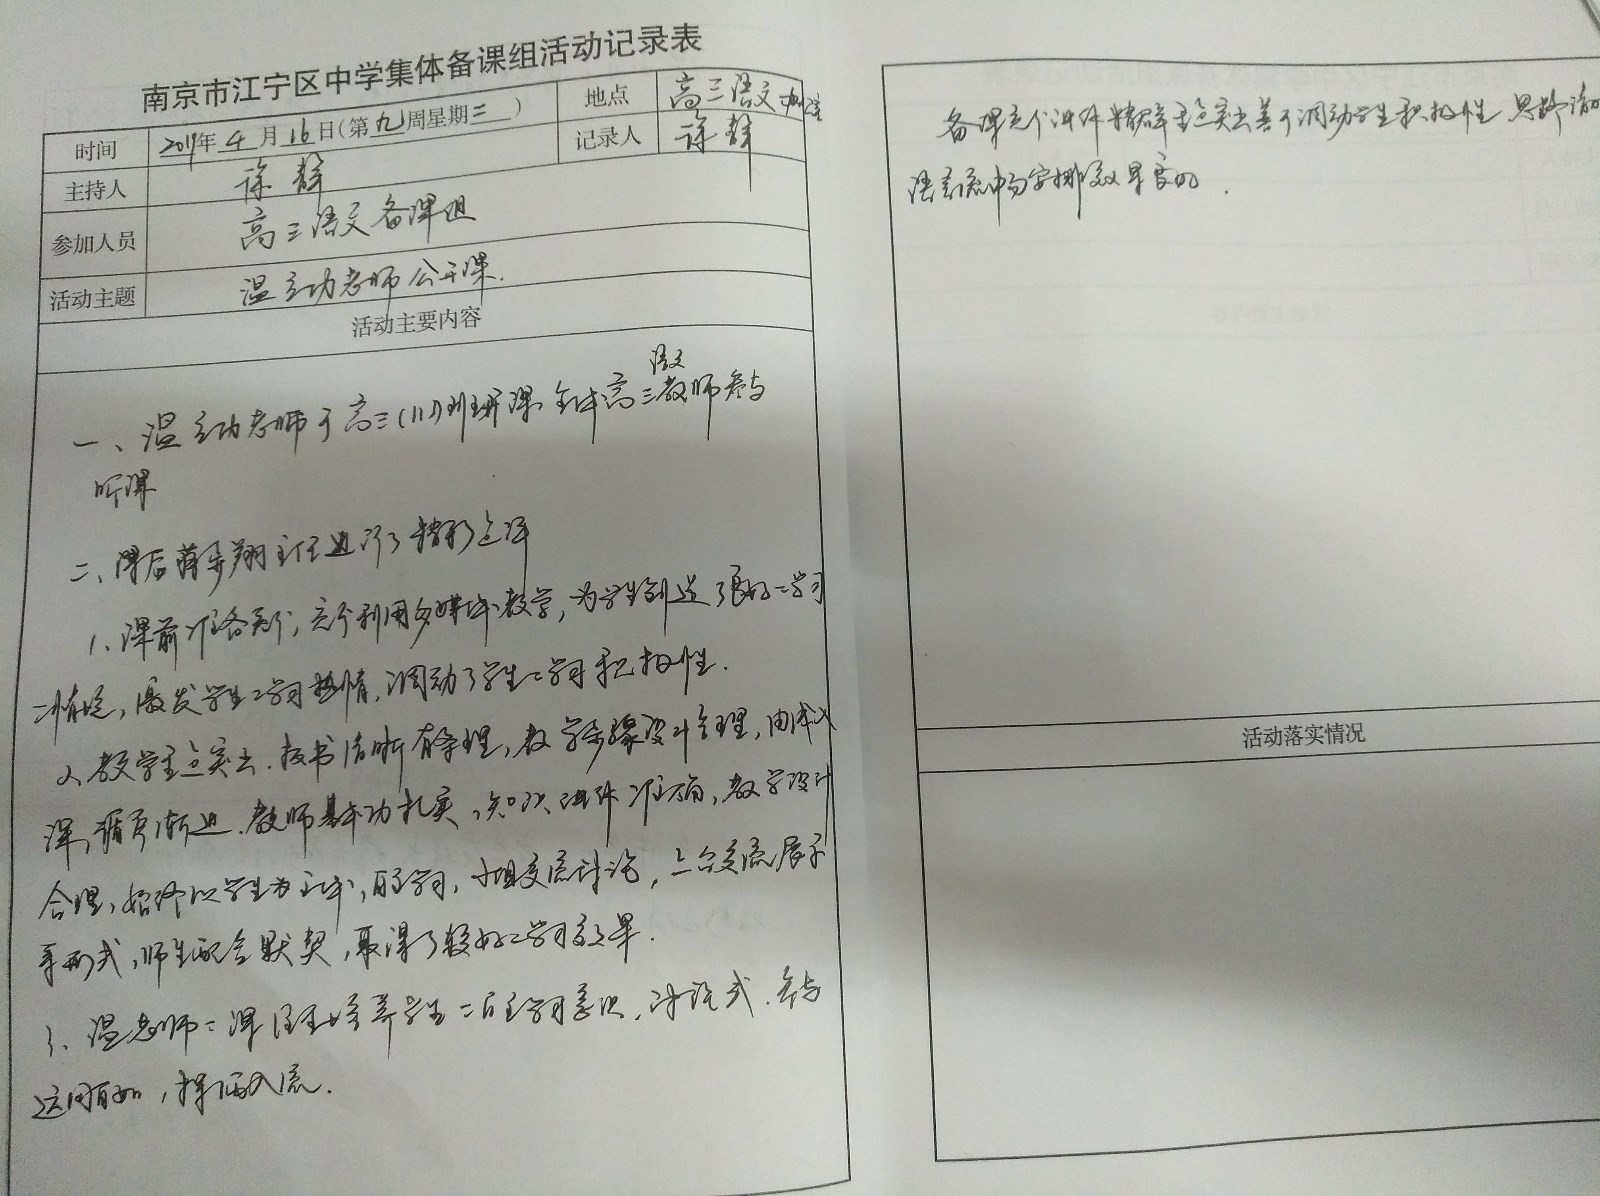 南京市江宁区中学集体备课组活动记录表
时间 2019年4月16日(第九周星期三) 地点 高三语文办公室
主持人 徐静 记录人 徐静
参加人员 高三语文备课组
活动主题 温立功老师公开课.
活动主要内容
一、温立功老师于高三(11)班开课 全体高三语文教师参与
听课
二、课后蒋步翔主任进行了精彩点评
1、课前准备充分, 充分利用多媒体教学, 为学生创造了良好的学习
情境, 激发学生的学习热情, 调动了学生的学习积极性.
2、教学重点突出. 板书清晰有条理, 教学步骤设计合理, 由浅入
深, 循序渐进. 教师基本功扎实, 知识讲解准确, 教学设计
合理, 始终以学生为主体, 自学, 小组交流讨论, 上台交流展示
等形式, 师生配合默契, 取得了较好的学习效果.
3、温老师的课注重培养学生的自主学习意识, 讨论式. 参与
运用自如, 挥洒入流.
备课充分讲解精辟重点突出善于调动学生积极性 思路清晰
语言流畅安排效果良好.
活动落实情况